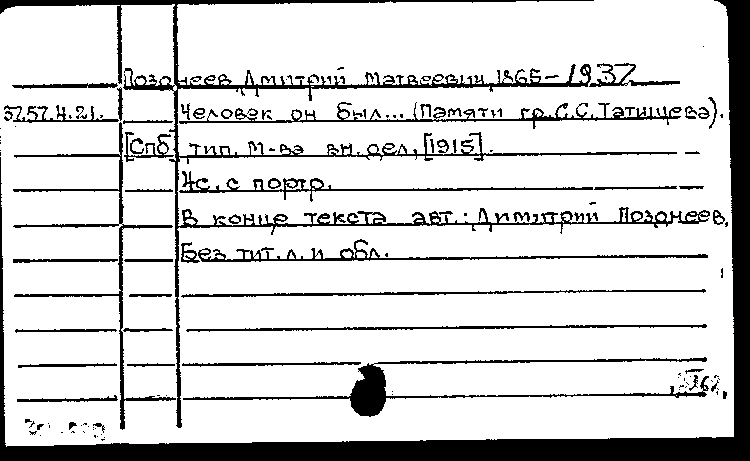 Позднеев, Дмитрий Матвеевич, 1865-1937
37.57.4.21. Человек он был... (Памяти гр. С.С. Татищева).
[Спб], тип. М-ва вн. дел, [1915].
4с. с портр.
В конце текста авт.: Димитрий Позднеев,
Без тит. л. и обл.